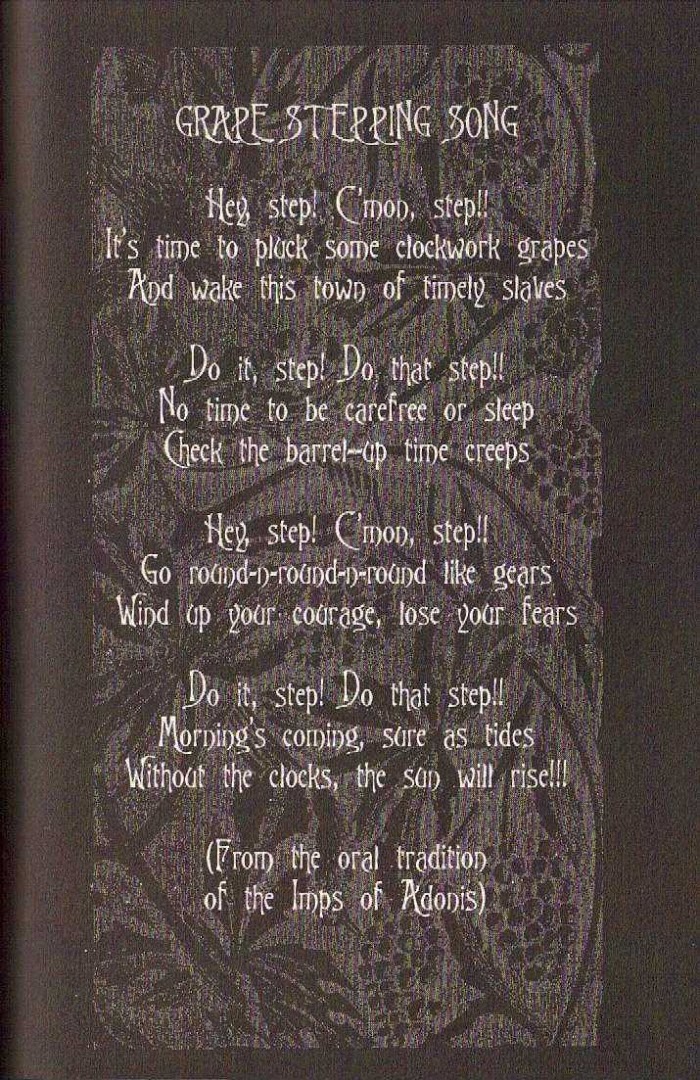 GRAPE STEPPING SONG
Hey, step! C'mon, step!!
It's time to pluck some clockwork grapes
And wake this town of timely slaves
Do it, step! Do, that step!!
No time to be carefree or sleep
Check the barrel-up time creeps
Hey, step! C'mon, step!!
Go round-n-round-n-round like gears
Wind up your courage, lose your fears
Do it, step! Do that step!!
Morning's coming, sure as tides
Without the clocks, the sun will rise!!!
(From the oral tradition
of the Imps of Adonis)